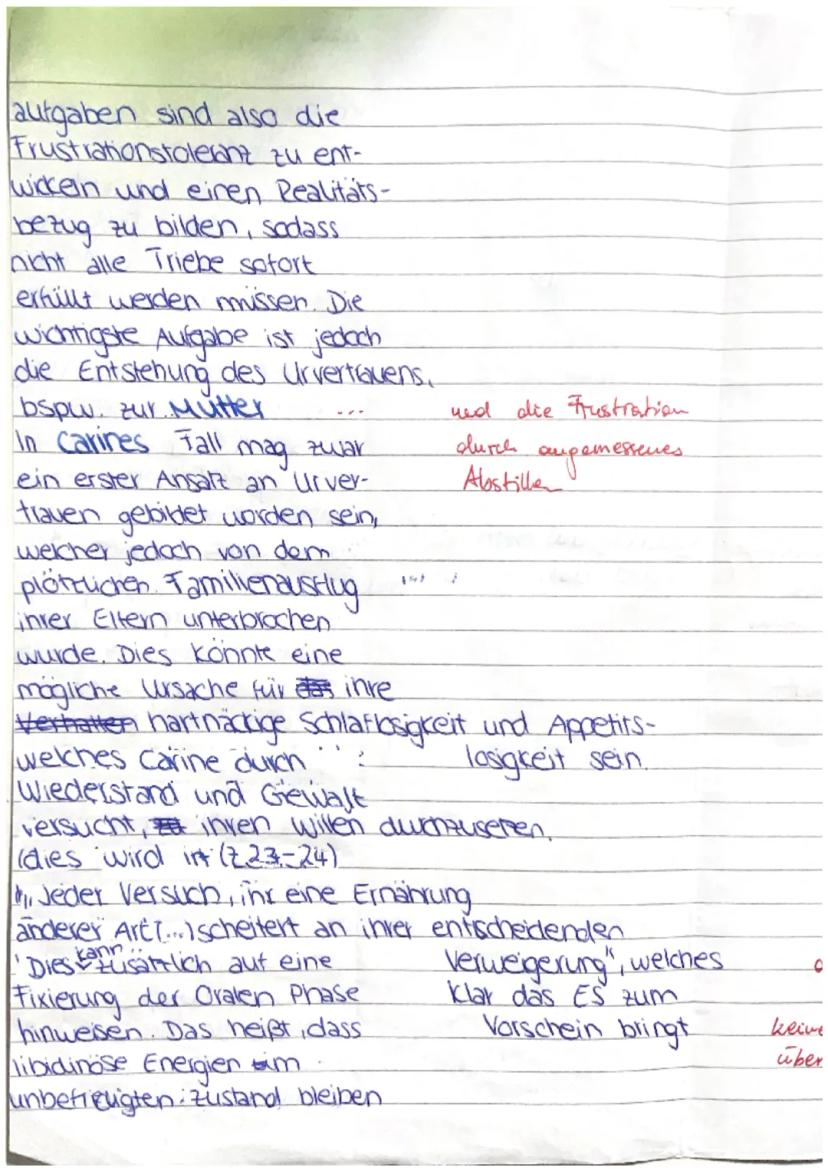 aufgaben sind also die
Frustrationstoleranz zu ent-
wickeln und einen Realitäts-
bezug zu bilden, sodass
nicht alle Triebe sofort
erfüllt werden müssen. Die
wichtigste Aufgabe ist jedoch
die Entstehung des Urvertrauens,
bspw. zur Mutter ... und die Frustration
In Carines Fall mag zwar durch angemessenes
ein erster Ansatz an Urver- Abstillen
trauen gebildet worden sein,
welcher jedoch von dem
plötzlichen Familienausflug
ihrer Eltern unterbrochen
wurde. Dies könnte eine
mögliche Ursache für ihre
Verhalten hartnäckige Schlaflosigkeit und Appetits-
welches Carine durch losigkeit sein.
Wiederstand und Gewalt
versucht, ihren willen durchzusetzen.
(dies wird in (Z 23-24)
"Jeder Versuch, ihr eine Ernährung
anderer Art (...) scheitert an ihrer entscheidenden
Dies kann zusätzlich auf eine Verweigerung", welches
Fixierung der Oralen Phase klar das ES zum
hinweisen. Das heißt, dass Vorschein bringt keine
libidinöse Energien im über
unbefriedigten Zustand bleiben